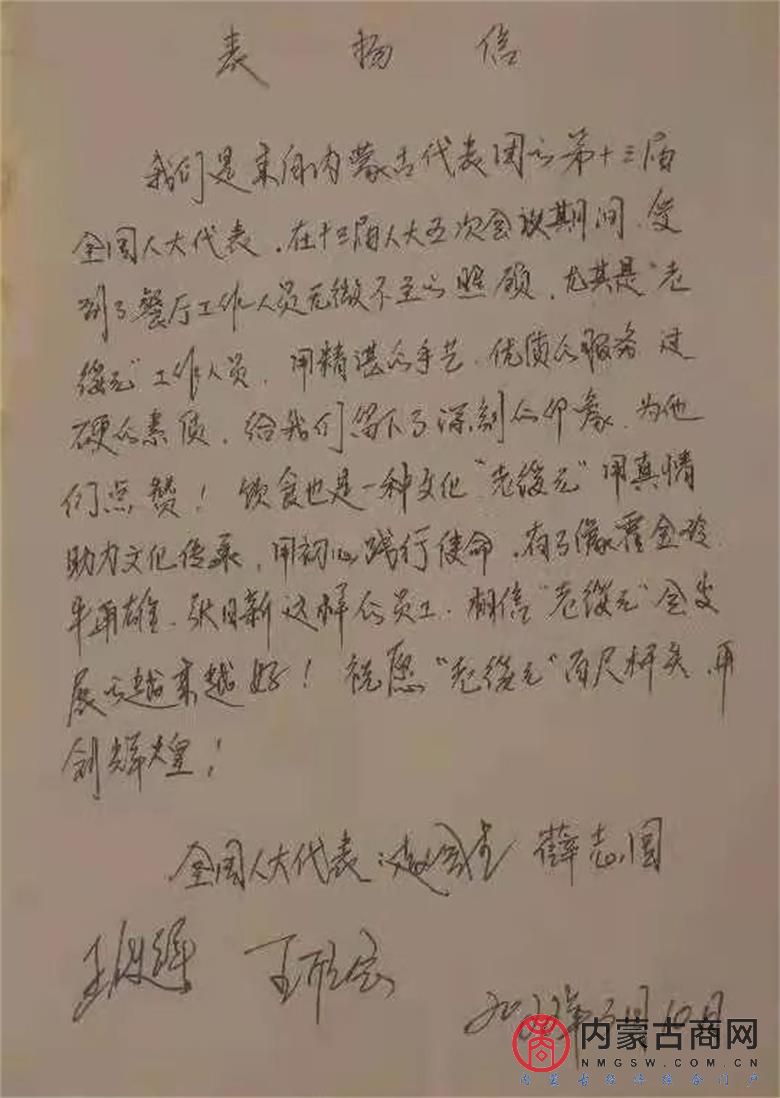 表扬信
我们是来自内蒙古代表团的第十三届
全国人大代表，在十三届人大五次会议期间，受
到了餐厅工作人员无微不至的照顾，尤其是“老
绥元”工作人员，用精湛的手艺、优质的服务、过
硬的素质，给我们留下了深刻的印象，为他
们点赞！饮食也是一种文化“老绥元”用真情
助力文化传承，用初心践行使命，有了像霍金
牛雨雄、张日新这样的员工，相信“老绥元”会发
展的越来越好！祝愿“老绥元”百尺杆头，再
创辉煌！
全国人大代表：薛志国
2022年3月10日
内蒙古商网
NMGSW.COM.CN
内蒙古经济综合门户